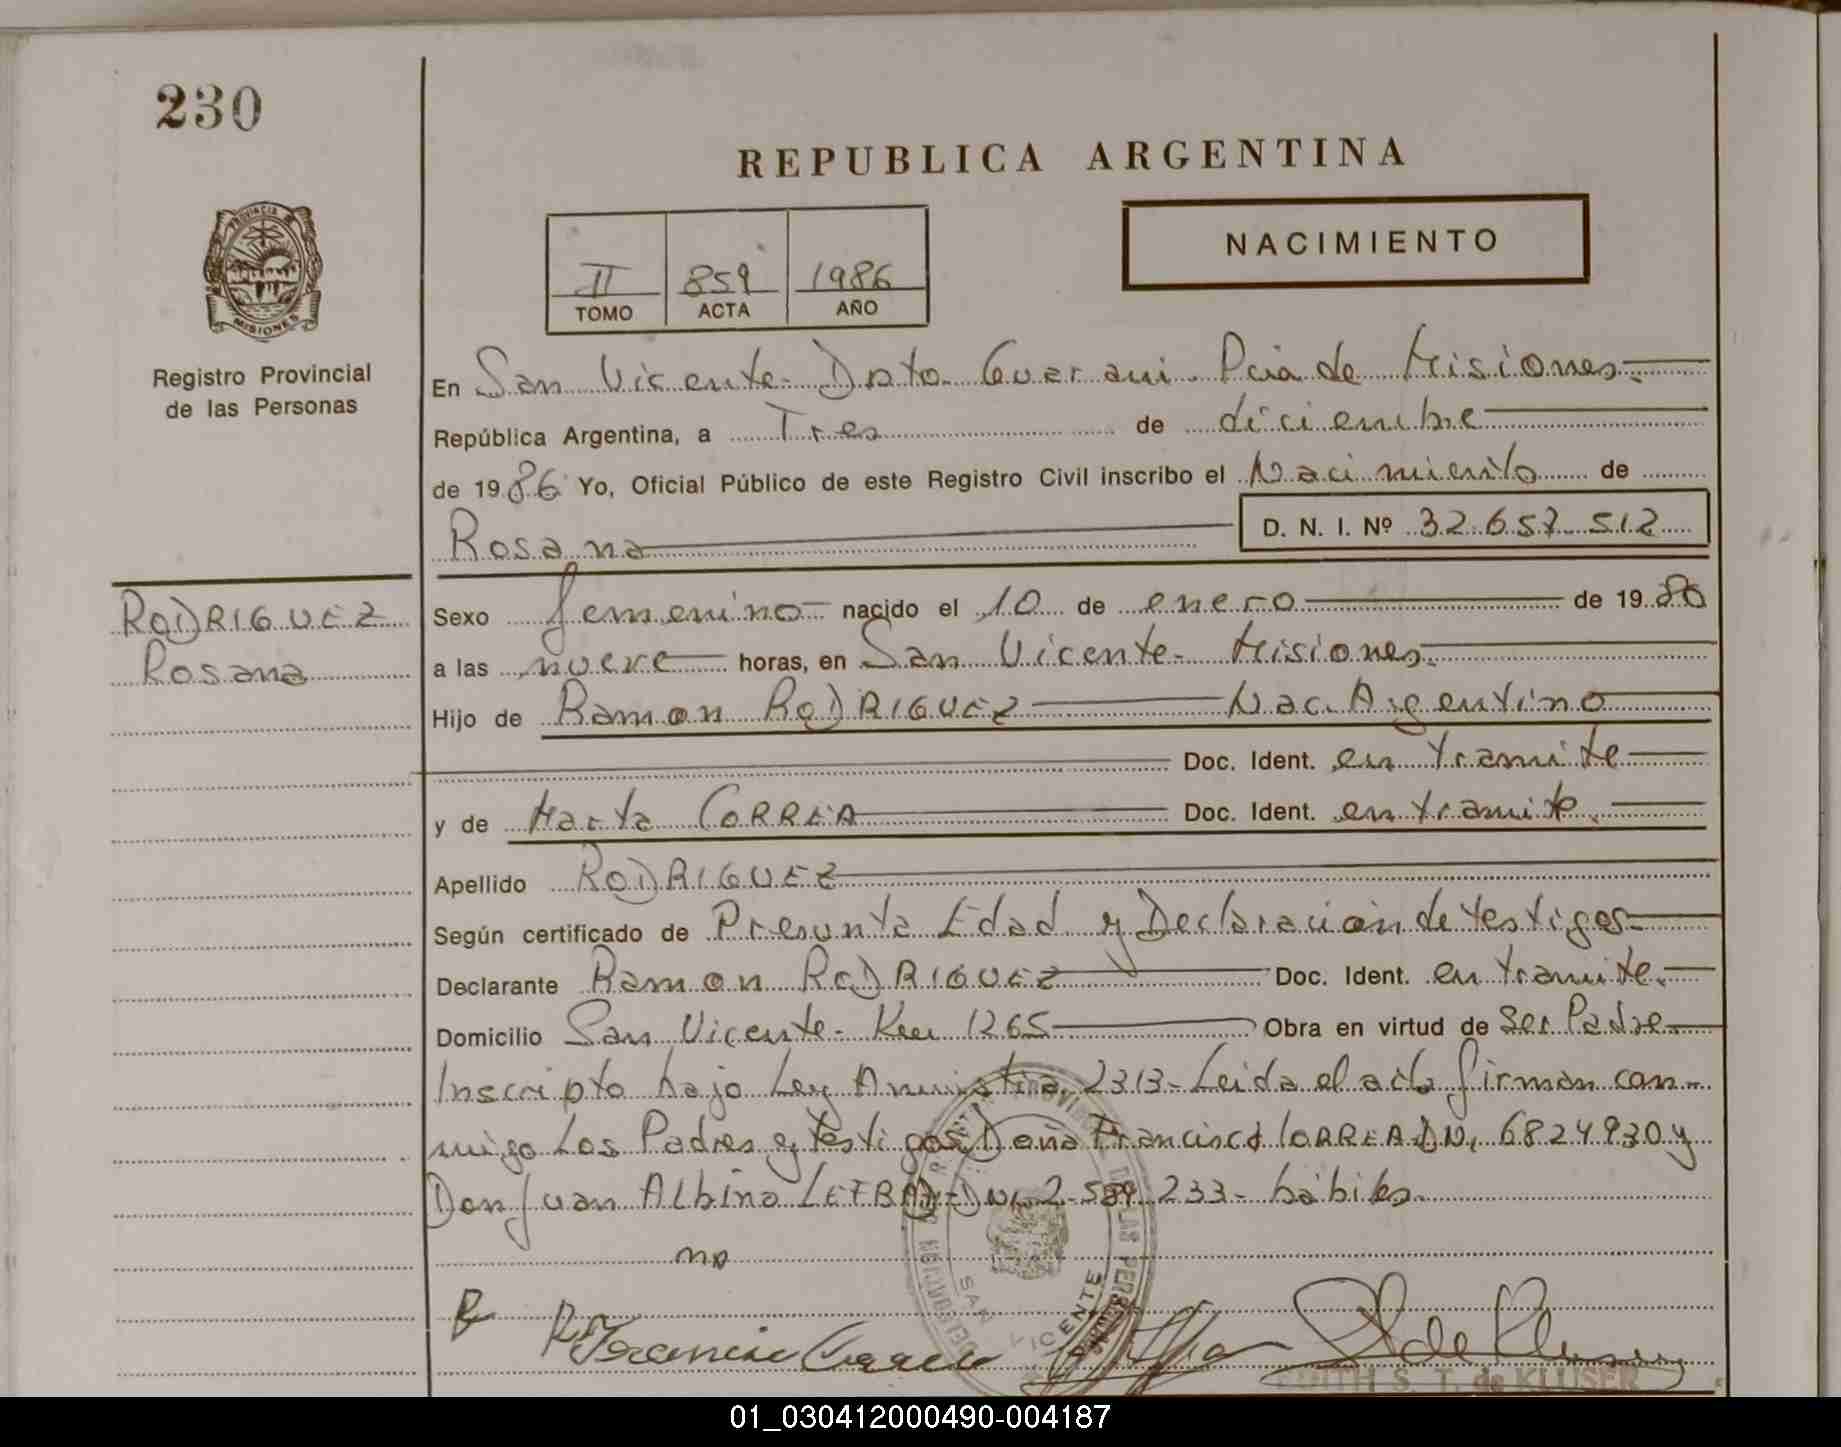 230
REPUBLICA ARGENTINA
NACIMIENTO
II 859 1986
TOMO ACTA AÑO
PROVINCIA D
MISIONES
Registro Provincial
de las Personas
En San Vicente - Dpto Guarani - Pcia de Misiones.
República Argentina, a Tres de diciembre
de 1986 Yo, Oficial Público de este Registro Civil inscribo el Nacimiento de
Rosana D. N. I. Nº 32.657.512
RODRIGUEZ
Rosana
Sexo femenino nacido el 10 de enero de 1980
a las nueve horas, en San Vicente - Misiones.
Hijo de Ramon RODRIGUEZ Nac. Argentino
Doc. Ident. en tramite
y de Marta CORREA Doc. Ident. en tramite.
Apellido RODRIGUEZ
Según certificado de Presunta Edad y Declaracion de testigos
Declarante Ramon RODRIGUEZ Doc. Ident. en tramite.
Domicilio San Vicente - Km 1265 Obra en virtud de Ser Padre
Inscripto bajo Ley Amnistia 2313 - Leida el acta firman con
migo Los Padres y testigos Doña Francisca CORREA DNI, 6824930 y
Don Juan Albino DNI, 2-584 233 - habiles.
SAN VICENTE
EDITH S. T. de KLUSER
01_030412000490-004187